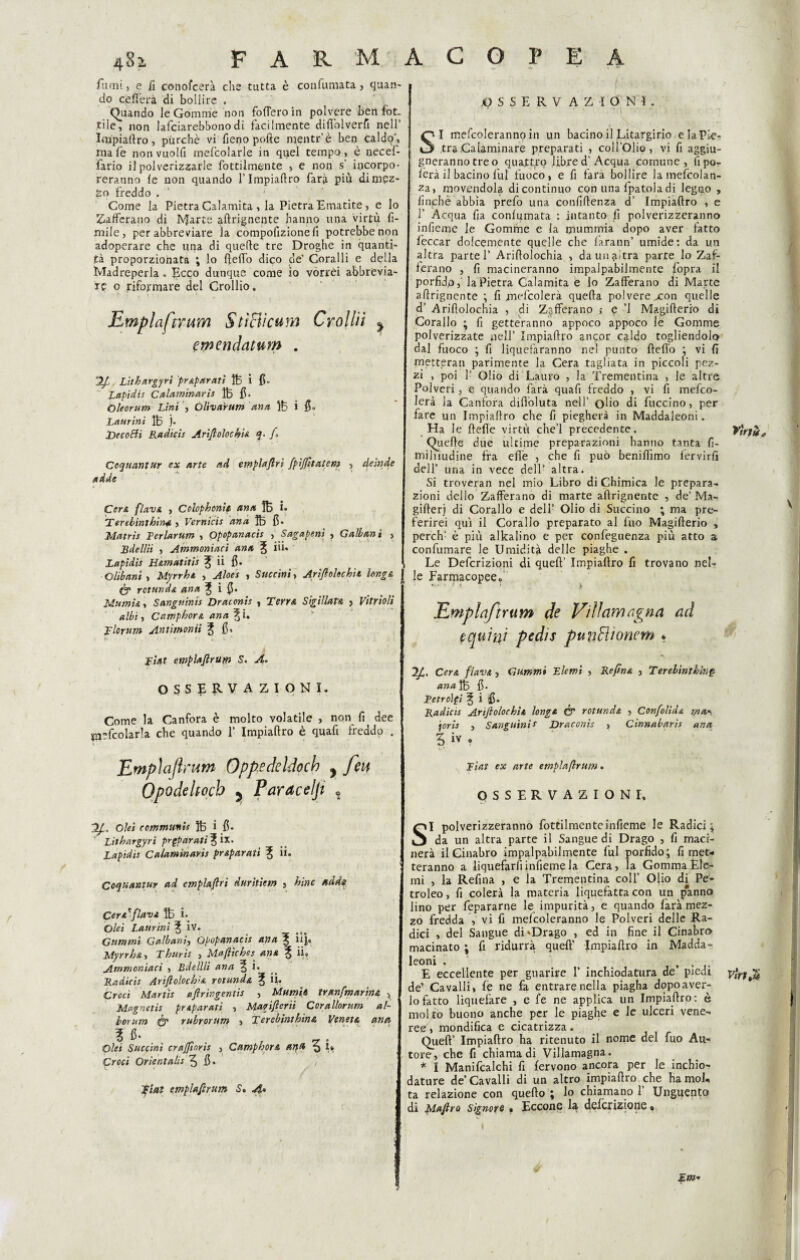 482 FARMACOPEA
fumi, e ſi conoſcerà che tutta è conſumata, quan-
do ceſſerà di bollire .
Quando le Gomme non foſſero in polvere ben ſot-
tile, non laſciarebbono di facilmente diſſolverſi nell'
Impiaſtro, purchè vi ſieno poſte mentr'è ben caldo,
ma ſe non vuolſi meſcolarle in quel tempo, è neceſ-
ſario il polverizzarle ſottilmente , e non s' incorpo-
reranno ſe non quando l'Impiaſtro farà più di mez-
zo freddo .
Come la Pietra Calamita , la Pietra Ematite, e lo
Zafferano di Marte aſtrignente hanno una virtù ſi-
mile, per abbreviare la compoſizione ſi potrebbe non
adoperare che una di queſte tre Droghe in quanti-
tà proporzionata ; lo ſteſſo dico de' Coralli e della
Madreperla . Ecco dunque come io vorrei abbrevia-
re o riformare del Crollio.
Emplaſtrum Sticticum Crollii ,
emendatum .
℞. Lithargyri præparati ℔ i ß.
Lapidis Calaminaris ℔ ß.
Oleorum Lini , Olivarum ana ℔ i ß.
Laurini ℔ j.
Decocti Radicis Ariſtolochiæ q. ſ.
Coquantur ex arte ad emplaſtri ſpiſſitatem , deinde
adde
Ceræ flavæ , Colophoniæ ana ℔ i.
Terebinthinæ , Vernicis ana ℔ ß.
Matris Perlarum , Opopanacis , Sagapeni , Galbani ,
Bdellii , Ammoniaci ana ℥ iii.
Lapidis Hæmatitis ℥ ii ß.
Olibani , Myrrhæ , Aloes , Succini, Ariſtolochiæ longæ
& rotundæ ana ℥ i ß.
Mumiæ, Sanguinis Draconis , Terræ Sigillatæ , Vitrioli
albi, Camphoræ ana ℥ i.
Florum Antimonii ℥ ß.
Fiat emplaſtrum S. A.
OSSERVAZIONI.
Come la Canfora è molto volatile , non ſi dee
meſcolarla che quando l' Impiaſtro è quaſi freddo .
Emplaſtrum Oppedeldoch , ſeu
Opodeltoch , Paracelſi .
℞. Olei communis ℔ i ß.
Lithargyri præparati ℥ ix.
Lapidis Calaminaris præparati ℥ ii.
Coquantur ad emplaſtri duritiem , hinc adde
Ceræ flavæ ℔ i.
Olei Laurini ℥ iv.
Gummi Galbani, Opopanacis ana ℥ iij.
Myrrhæ, Thuris , Maſtiches ana ℥ ii.
Ammoniaci , Bdellii ana ℥ i.
Radicis Ariſtolochiæ rotundæ ℥ ii.
Croci Martis aſtringentis , Mumiæ tranſmarinæ ,
Magnetis præparati , Magiſterii Corallorum al-
borum & rubrorum , Terebinthinæ Venetæ ana
℥ ß.
Olei Succini craſſioris , Camphoræ ana ʒ i.
Croci Orientalis ʒ ß.
Fiat emplaſtrum S. A.
OSSERVAZIONI.
SI meſcoleranno in un bacino il Litargirio e la Pie-
tra Calaminare preparati , coll'Olio, vi ſi aggiu-
gneranno tre o quattro libre d' Acqua comune, ſi po-
ſerà il bacino ſul fuoco, e ſi farà bollire la meſcolan-
za, movendola di continuo con una ſpatola di legno ,
finchè abbia preſo una conſiſtenza d' Impiaſtro , e
l' Acqua ſia conſumata : intanto ſi polverizzeranno
inſieme le Gomme e la mummia dopo aver fatto
ſeccar dolcemente quelle che ſarann' umide: da un
altra parte l' Ariſtolochia , da un altra parte lo Zaf-
ferano , ſi macineranno impalpabilmente ſopra il
porfido, la Pietra Calamita e lo Zafferano di Marte
aſtrignente ; ſi meſcolerà queſta polvere con quelle
d' Ariſtolochia , di Zafferano ; e 'l Magiſterio di
Corallo ; ſi getteranno appoco appoco le Gomme
polverizzate nell' Impiaſtro ancor caldo togliendolo
dal fuoco ; ſi liquefaranno nel punto ſteſſo ; vi ſi
metteran parimente la Cera tagliata in piccoli pez-
zi , poi l' Olio di Lauro , la Trementina , le altre
Polveri , e quando ſarà quaſi freddo , vi ſi meſco-
lerà la Canfora diſſoluta nell' Olio di ſuccino, per
fare un Impiaſtro che ſi piegherà in Maddaleoni.
Ha le ſteſſe virtù che'l precedente. Virtù.
Queſte due ultime preparazioni hanno tanta ſi-
militudine fra eſſe , che ſi può beniſſimo ſervirſi
dell' una in vece dell' altra.
Si troveran nel mio Libro di Chimica le prepara-
zioni dello Zafferano di marte aſtrignente , de' Ma-
giſterj di Corallo e dell' Olio di Succino ; ma pre-
ferirei quì il Corallo preparato al ſuo Magiſterio ,
perch' è più alkalino e per conſeguenza più atto a
conſumare le Umidità delle piaghe .
Le Deſcrizioni di queſt' Impiaſtro ſi trovano nel-
le Farmacopee.
Emplaſtrum de Villamagna ad
equini pedis punctionem .
℞. Ceræ flavæ , Gummi Elemi , Reſinæ , Terebinthinæ
ana ℔ ß.
Petrolei ℥ i ß.
Radicis Ariſtolochiæ longæ & rotundæ , Conſolidæ ma-
joris , Sanguinis Draconis , Cinnabaris ana
ʒ iv .
Fiat ex arte emplaſtrum.
OSSERVAZIONI.
SI polverizzeranno ſottilmente inſieme le Radici ;
da un altra parte il Sangue di Drago , ſi maci-
nerà il Cinabro impalpabilmente ſul porfido; ſi met-
teranno a liquefarſi inſieme la Cera, la Gomma Ele-
mi , la Reſina , e la Trementina coll' Olio di Pe-
troleo, ſi colerà la materia liquefatta con un panno
lino per ſepararne le impurità, e quando ſarà mez-
zo fredda , vi ſi meſcoleranno le Polveri delle Ra-
dici , del Sangue di Drago , ed in fine il Cinabro
macinato ; ſi ridurrà queſt' Impiaſtro in Madda-
leoni .
E eccellente per guarire l' inchiodatura de' piedi Virtù.
de' Cavalli, ſe ne fa entrare nella piagha dopo aver-
lo fatto liquefare , e ſe ne applica un Impiaſtro: è
molto buono anche per le piaghe e le ulceri vene-
ree, mondifica e cicatrizza.
Queſt' Impiaſtro ha ritenuto il nome del ſuo Au-
tore, che ſi chiama di Villamagna.
* I Maniſcalchi ſi ſervono ancora per le inchio-
dature de'Cavalli di un altro impiaſtro che ha mol-
ta relazione con queſto ; lo chiamano l' Unguento
di Maſtro Signore . Eccone la deſcrizione.
Em-